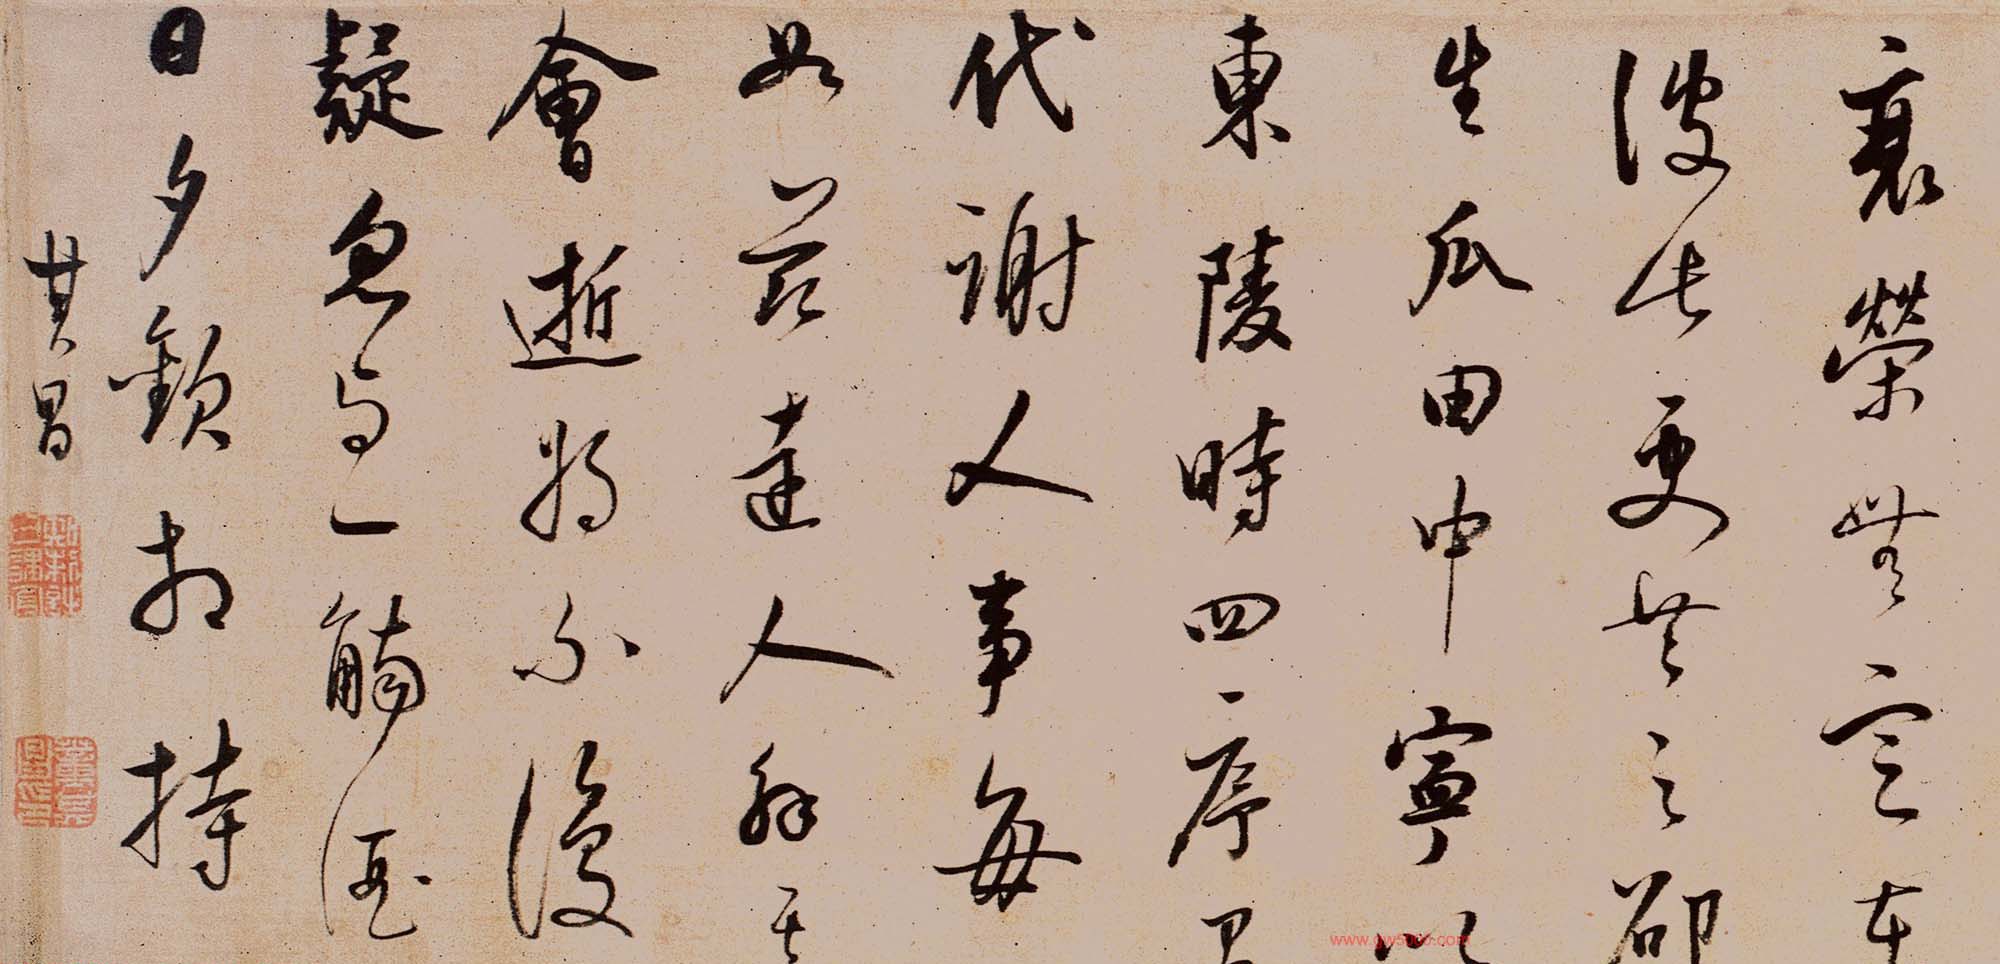 衰榮無定在
彼此更共之邵
生瓜田中寧似
東陵時四序
代謝人事每
如茲達人解其
會逝將不復
疑忽與一觴酒
日夕歡相持
其昌
知制誥日講官
董其昌印